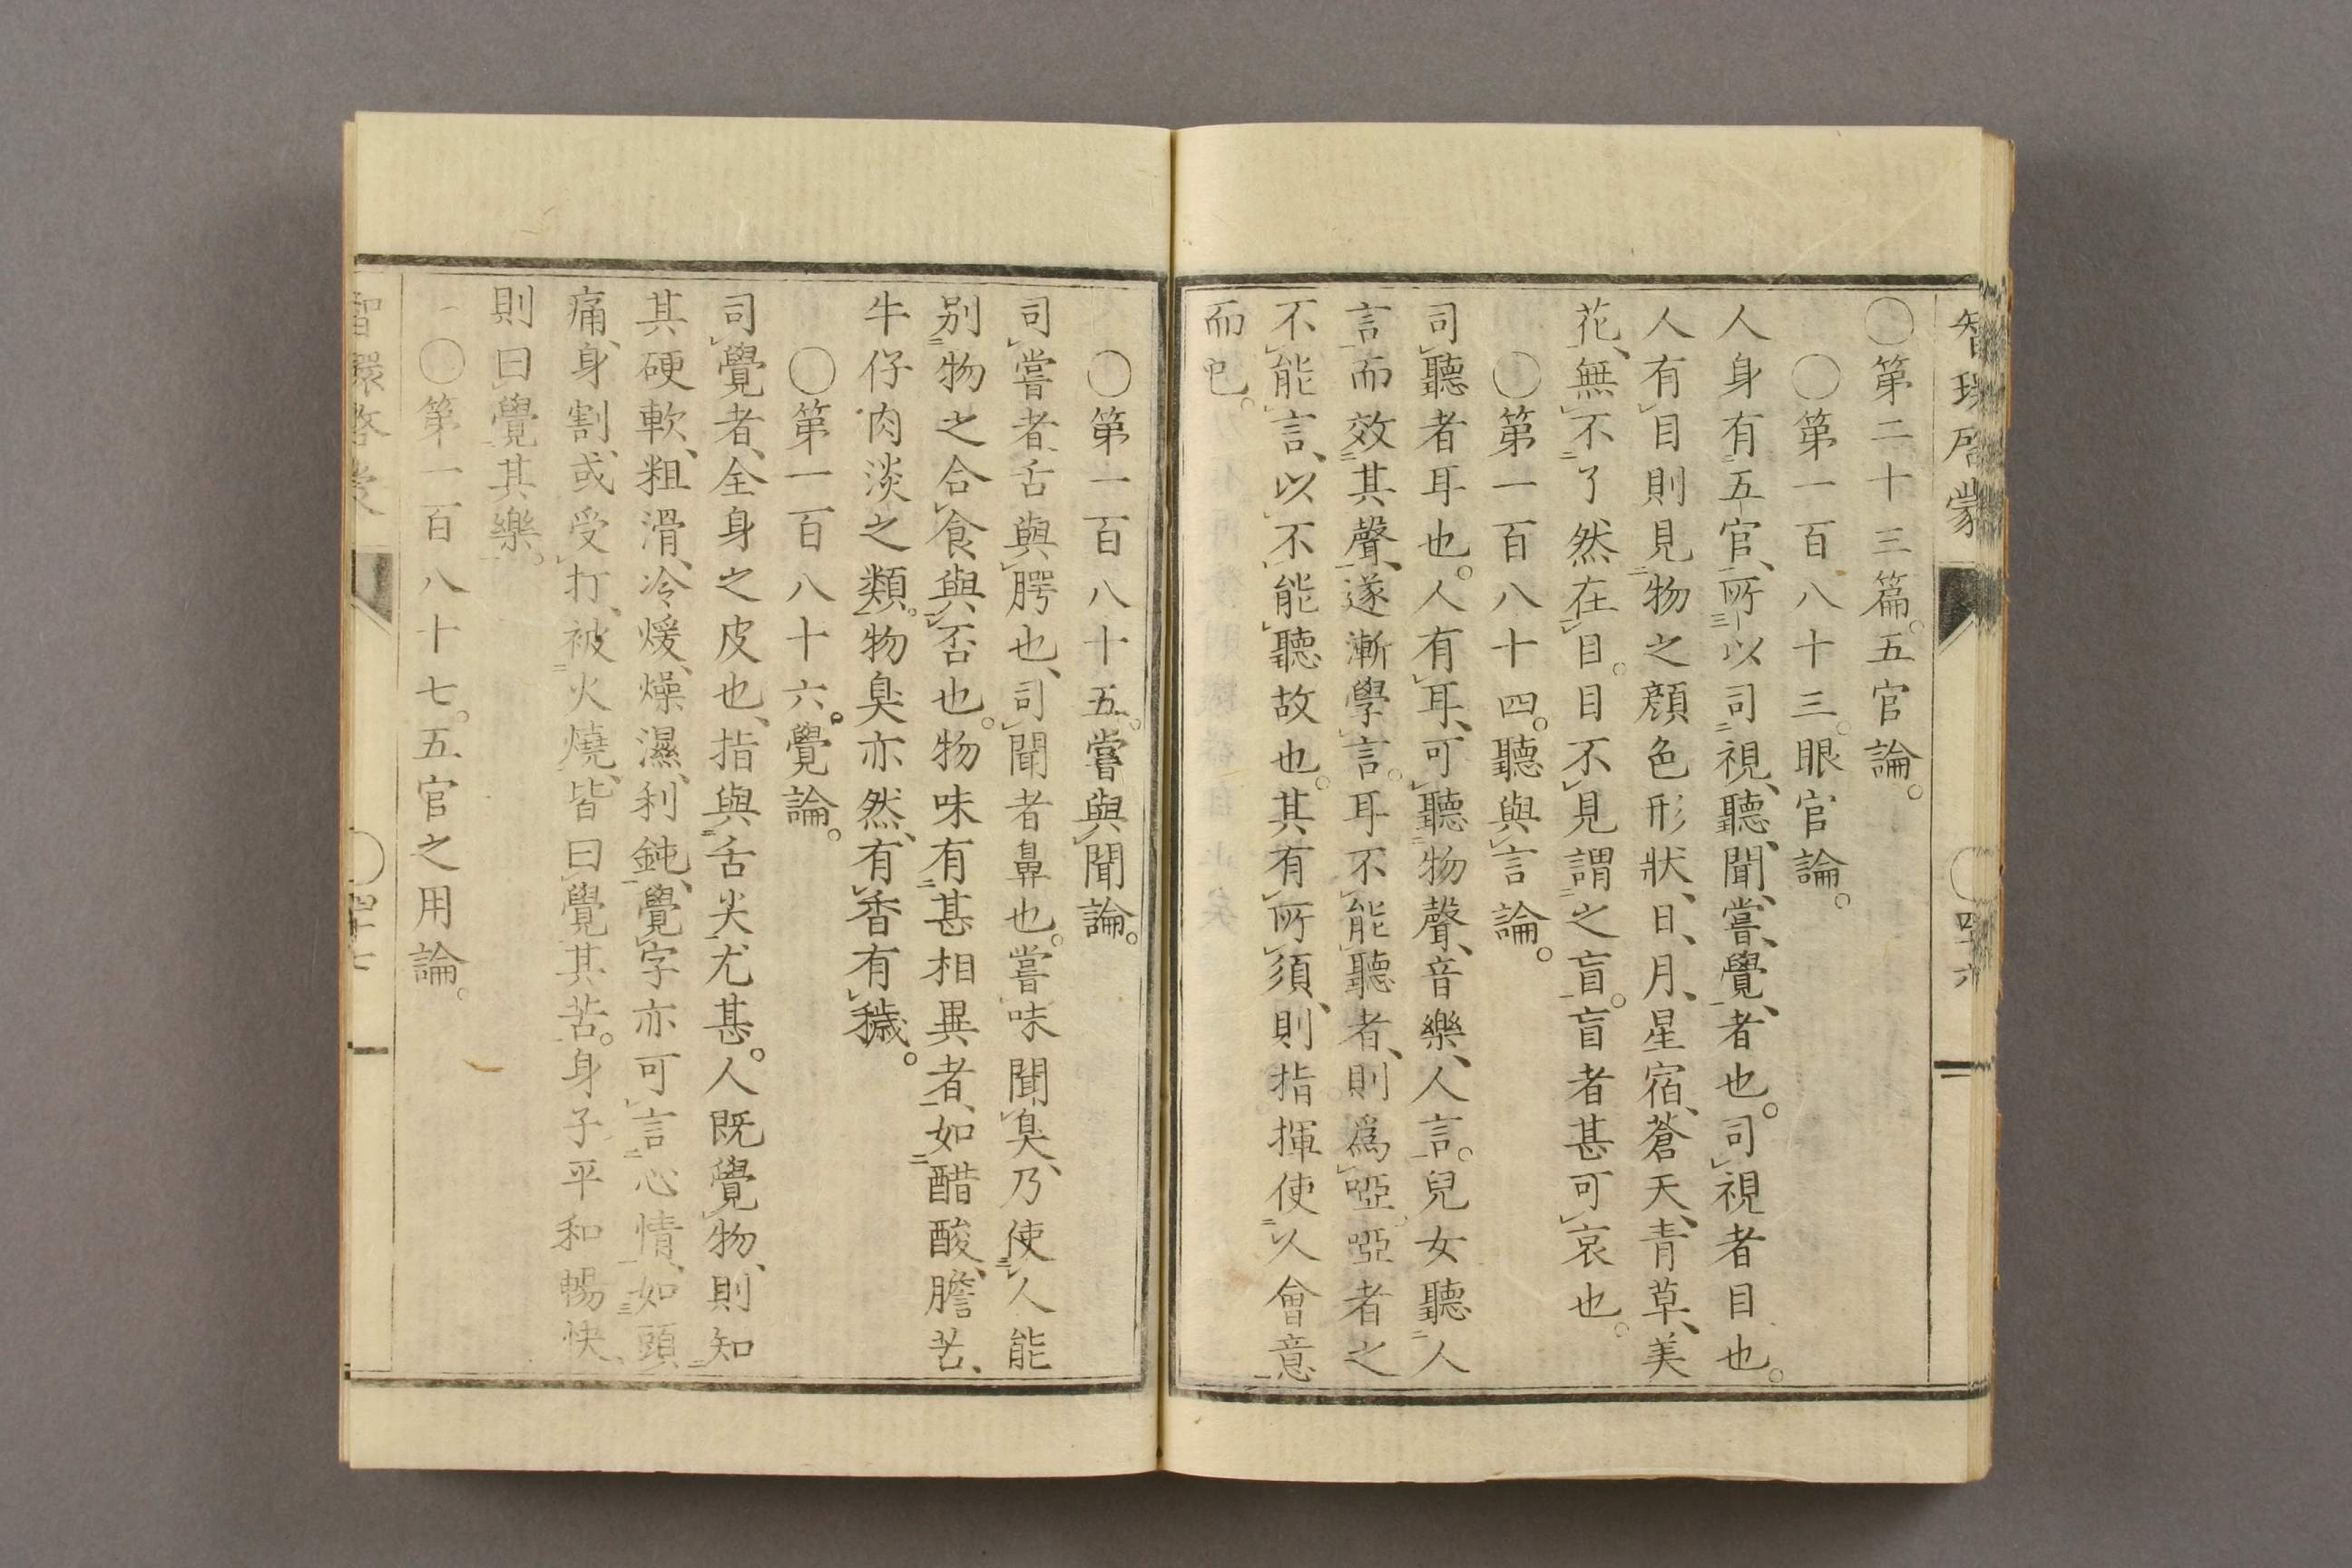 智環啓蒙
四十六
〇第二十三篇。五官論。
〇第一百八十三。眼官論。
人身有五官、所以司視、聽、聞、嘗、覺、者也。司視者目也。
人有目則見物之顔色形狀、日、月、星宿、蒼天、青草、美
花、無不了然在目。目不見謂之盲。盲者甚可哀也。
〇第一百八十四。聽與言論。
司聽者耳也。人有耳、可聽物聲、音樂、人言。兒女聽人
言而效其聲、遂漸學言。耳不能聽者、則爲啞。啞者之
不能言、以不能聽故也。其有所須、則指揮使人會意
而已。
〇第一百八十五。嘗與聞論。
司嘗者、舌與腭也、司聞者鼻也。嘗味聞臭、乃使人能
别物之合食與否也。物味有甚相異者、如醋酸、膽苦、
牛仔肉淡之類。物臭亦然、有香有穢。
〇第一百八十六。覺論。
司覺者、全身之皮也、指與舌尖尤甚。人既覺物、則知
其硬軟、粗滑、冷煖、燥濕、利鈍、覺字亦可言心情、如頭
痛、身割、或受打、被火燒、皆曰覺其苦。身子平和暢快、
則曰覺其樂。
〇第一百八十七。五官之用論。
智環啓蒙
四十七